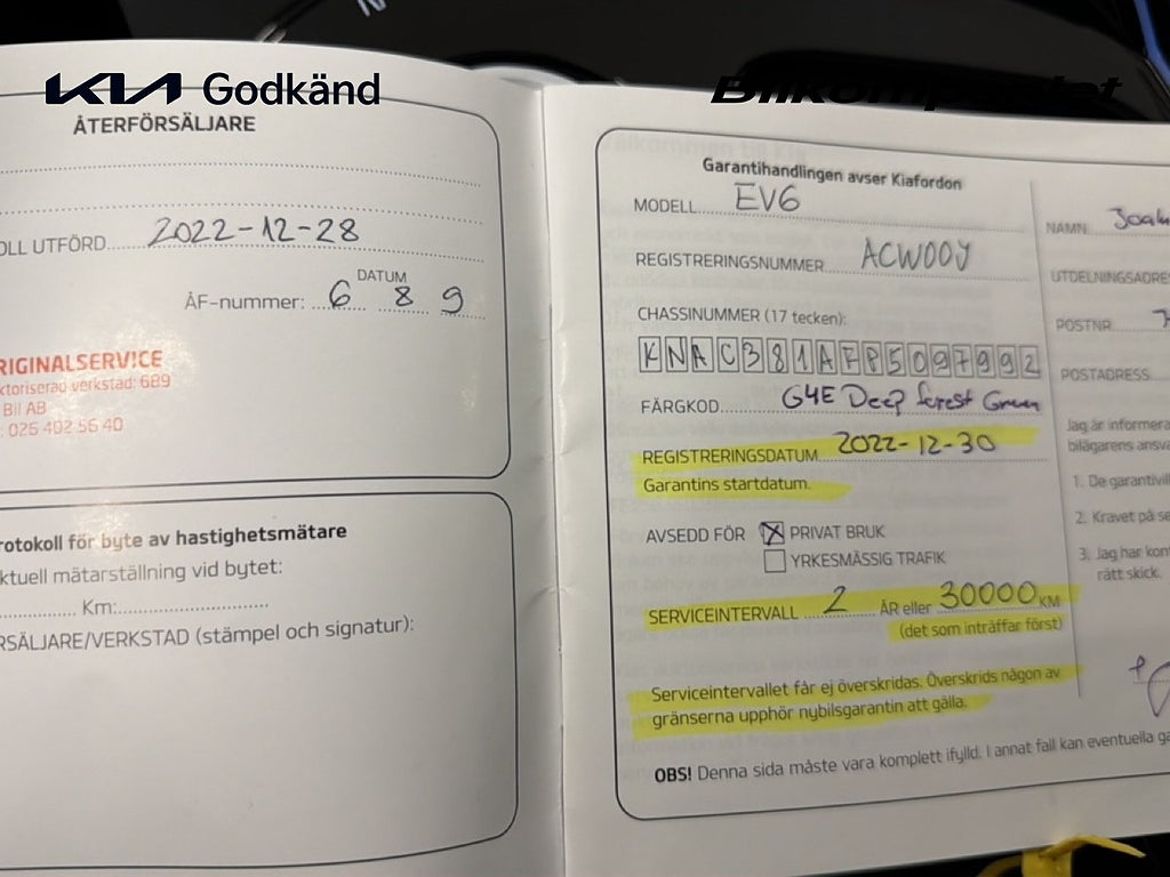 KIA Godkänd
Bilkompaniet
ÅTERFÖRSÄLJARE
OLL UTFÖRD 2022-12-28
DATUM
ÅF-nummer: 6 8 9
RIGINALSERVICE
ktoriserad verkstad: 689
Bil AB
: 026 492 56 40
rotokoll för byte av hastighetsmätare
ktuell mätarställning vid bytet:
Km:
RSÄLJARE/VERKSTAD (stämpel och signatur):
Garantihandlingen avser Kiafordon
MODELL EV6
REGISTRERINGSNUMMER ACW00Y
CHASSINUMMER (17 tecken):
KNAC381AFP5097992
FÄRGKOD G4E Deep forest Green
REGISTRERINGSDATUM 2022-12-30
Garantins startdatum.
AVSEDD FÖR X PRIVAT BRUK
YRKESMÄSSIG TRAFIK
SERVICEINTERVALL 2 ÅR eller 30000 KM
(det som inträffar först)
Serviceintervallet får ej överskridas. Överskrids någon av
gränserna upphör nybilsgarantin att gälla.
OBS! Denna sida måste vara komplett ifylld. I annat fall kan eventuella ga
NAMN Joak
UTDELNINGSADRE
POSTNR 7
POSTADRESS
Jag är informera
bilägarens ansva
1. De garantivill
2. Kravet på se
3. Jag har kon
rätt skick.